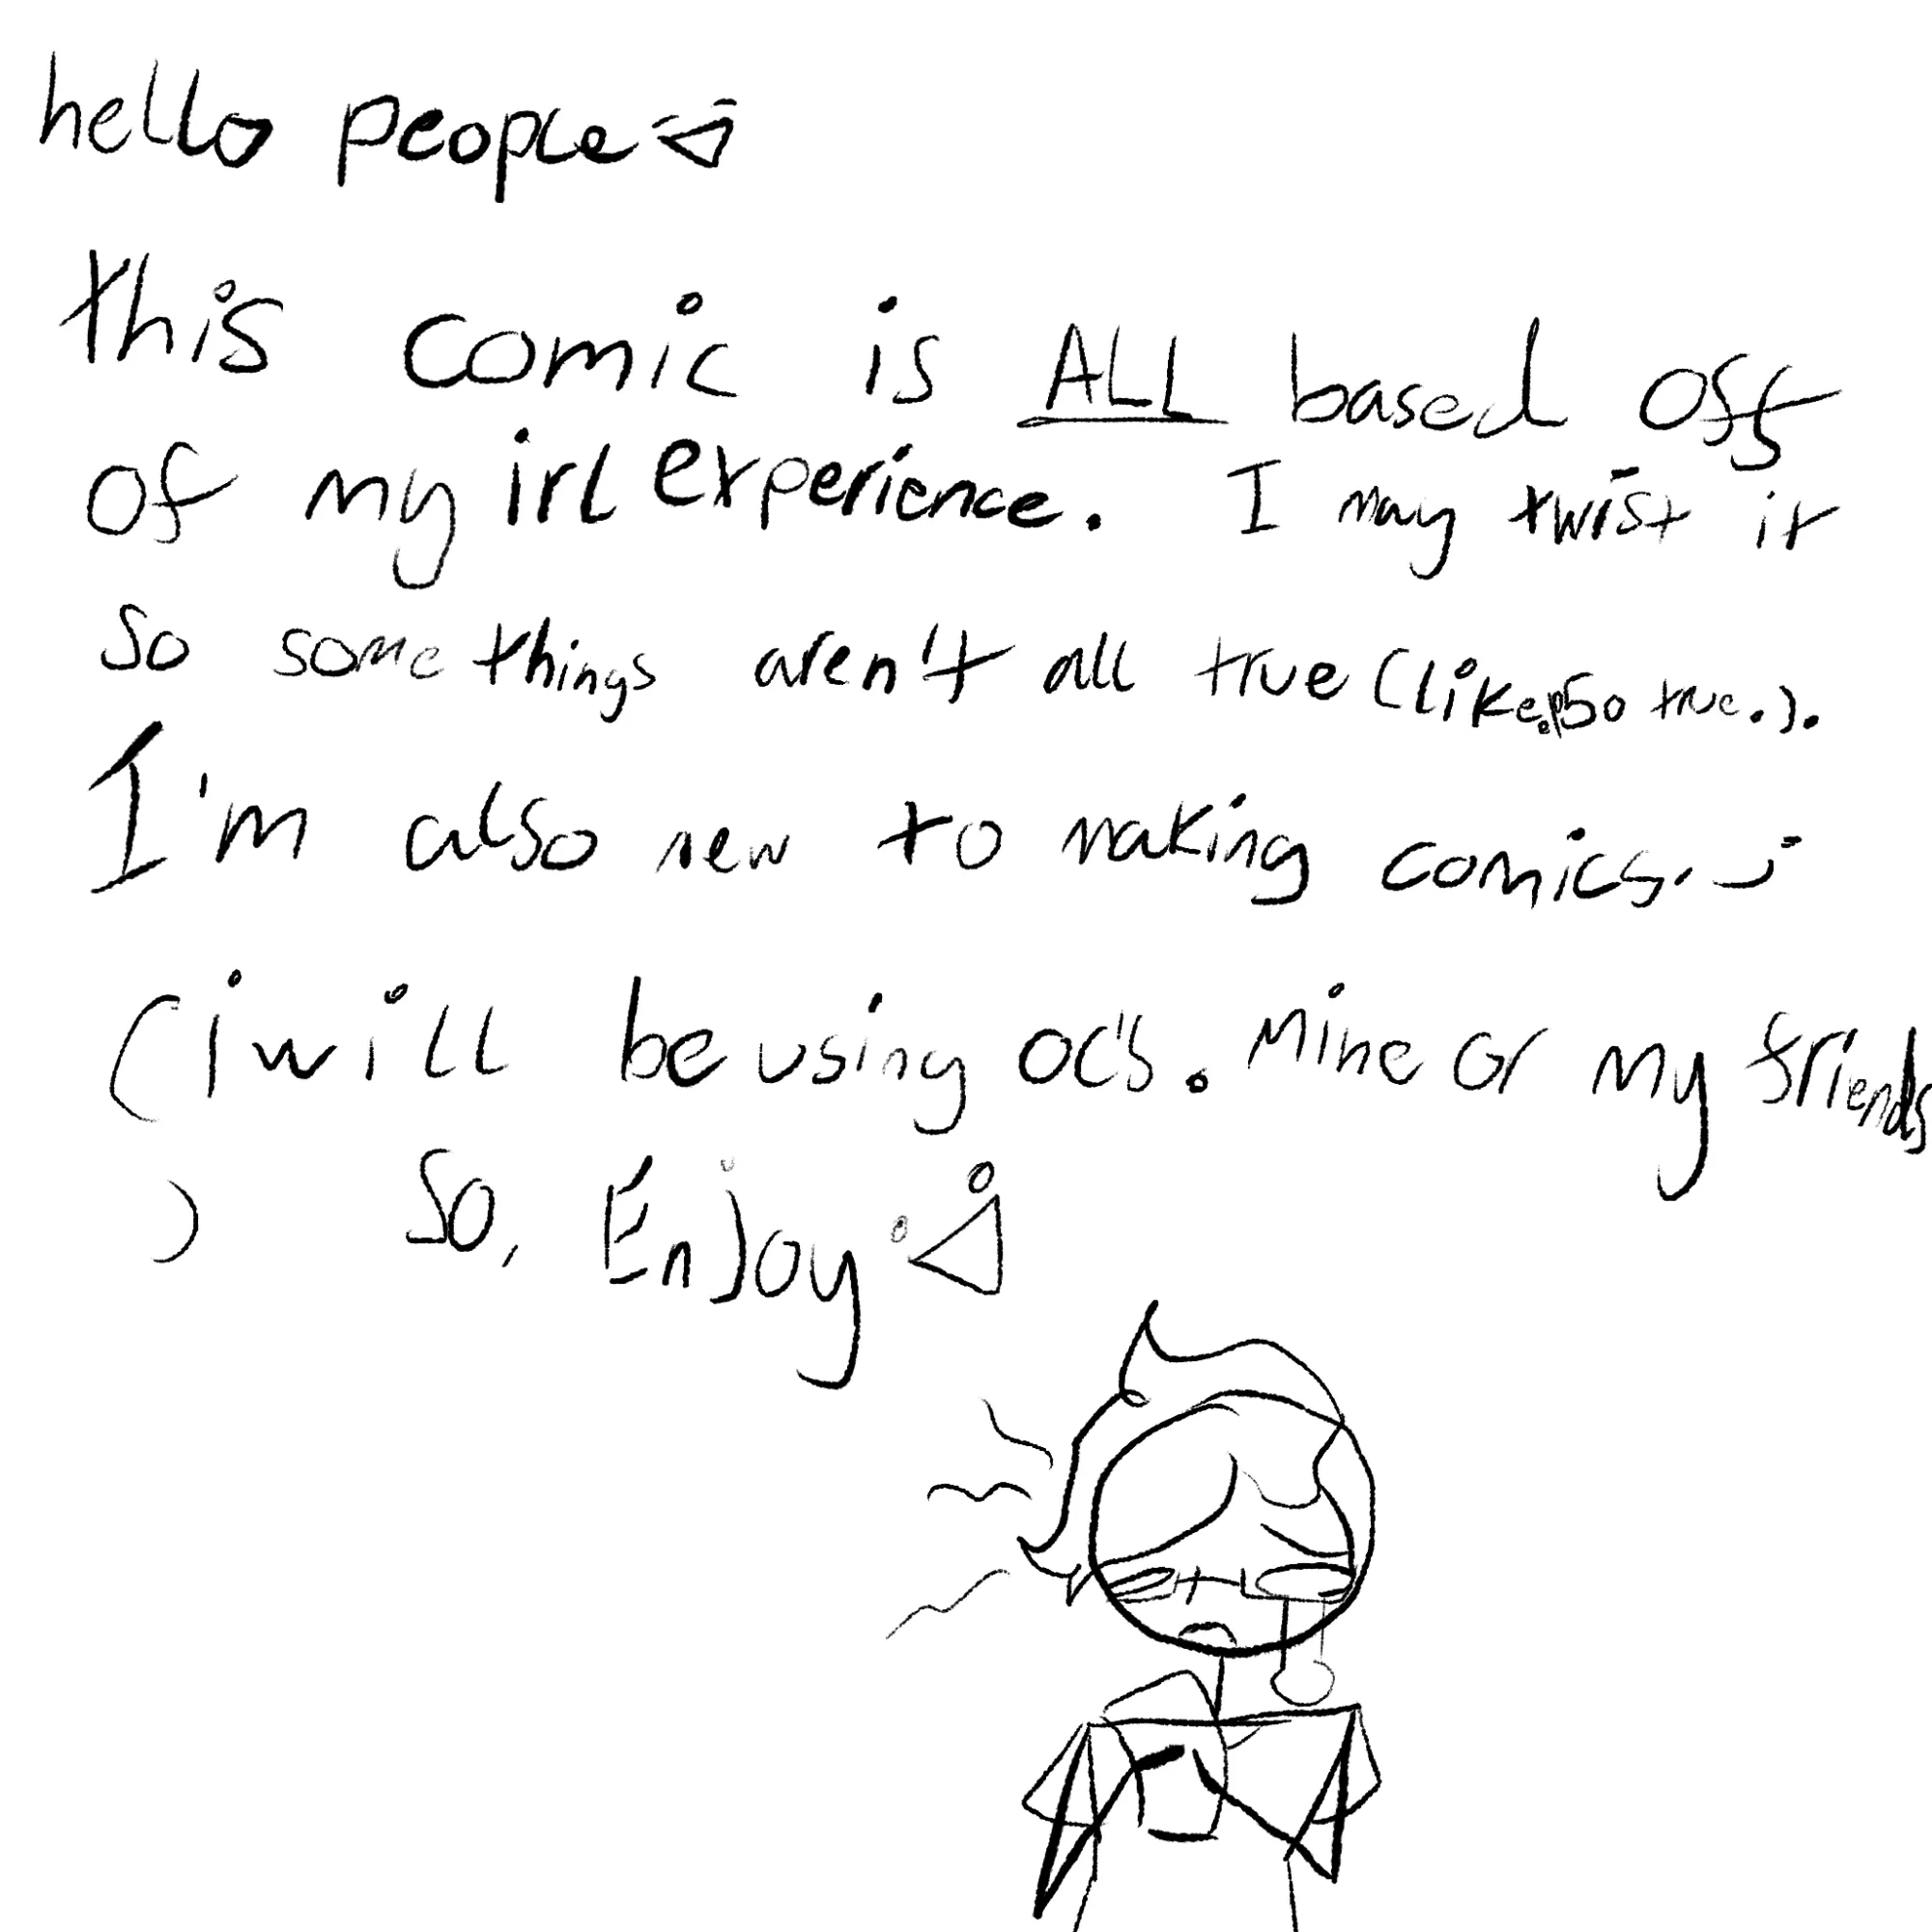 hello people
this comic is ALL based off
of my irl experience. I may twist it
so some things aren't all true (like so true.).
I'm also new to making comics.
(i will be using oc's. Mine or my friends
) So, Enjoy